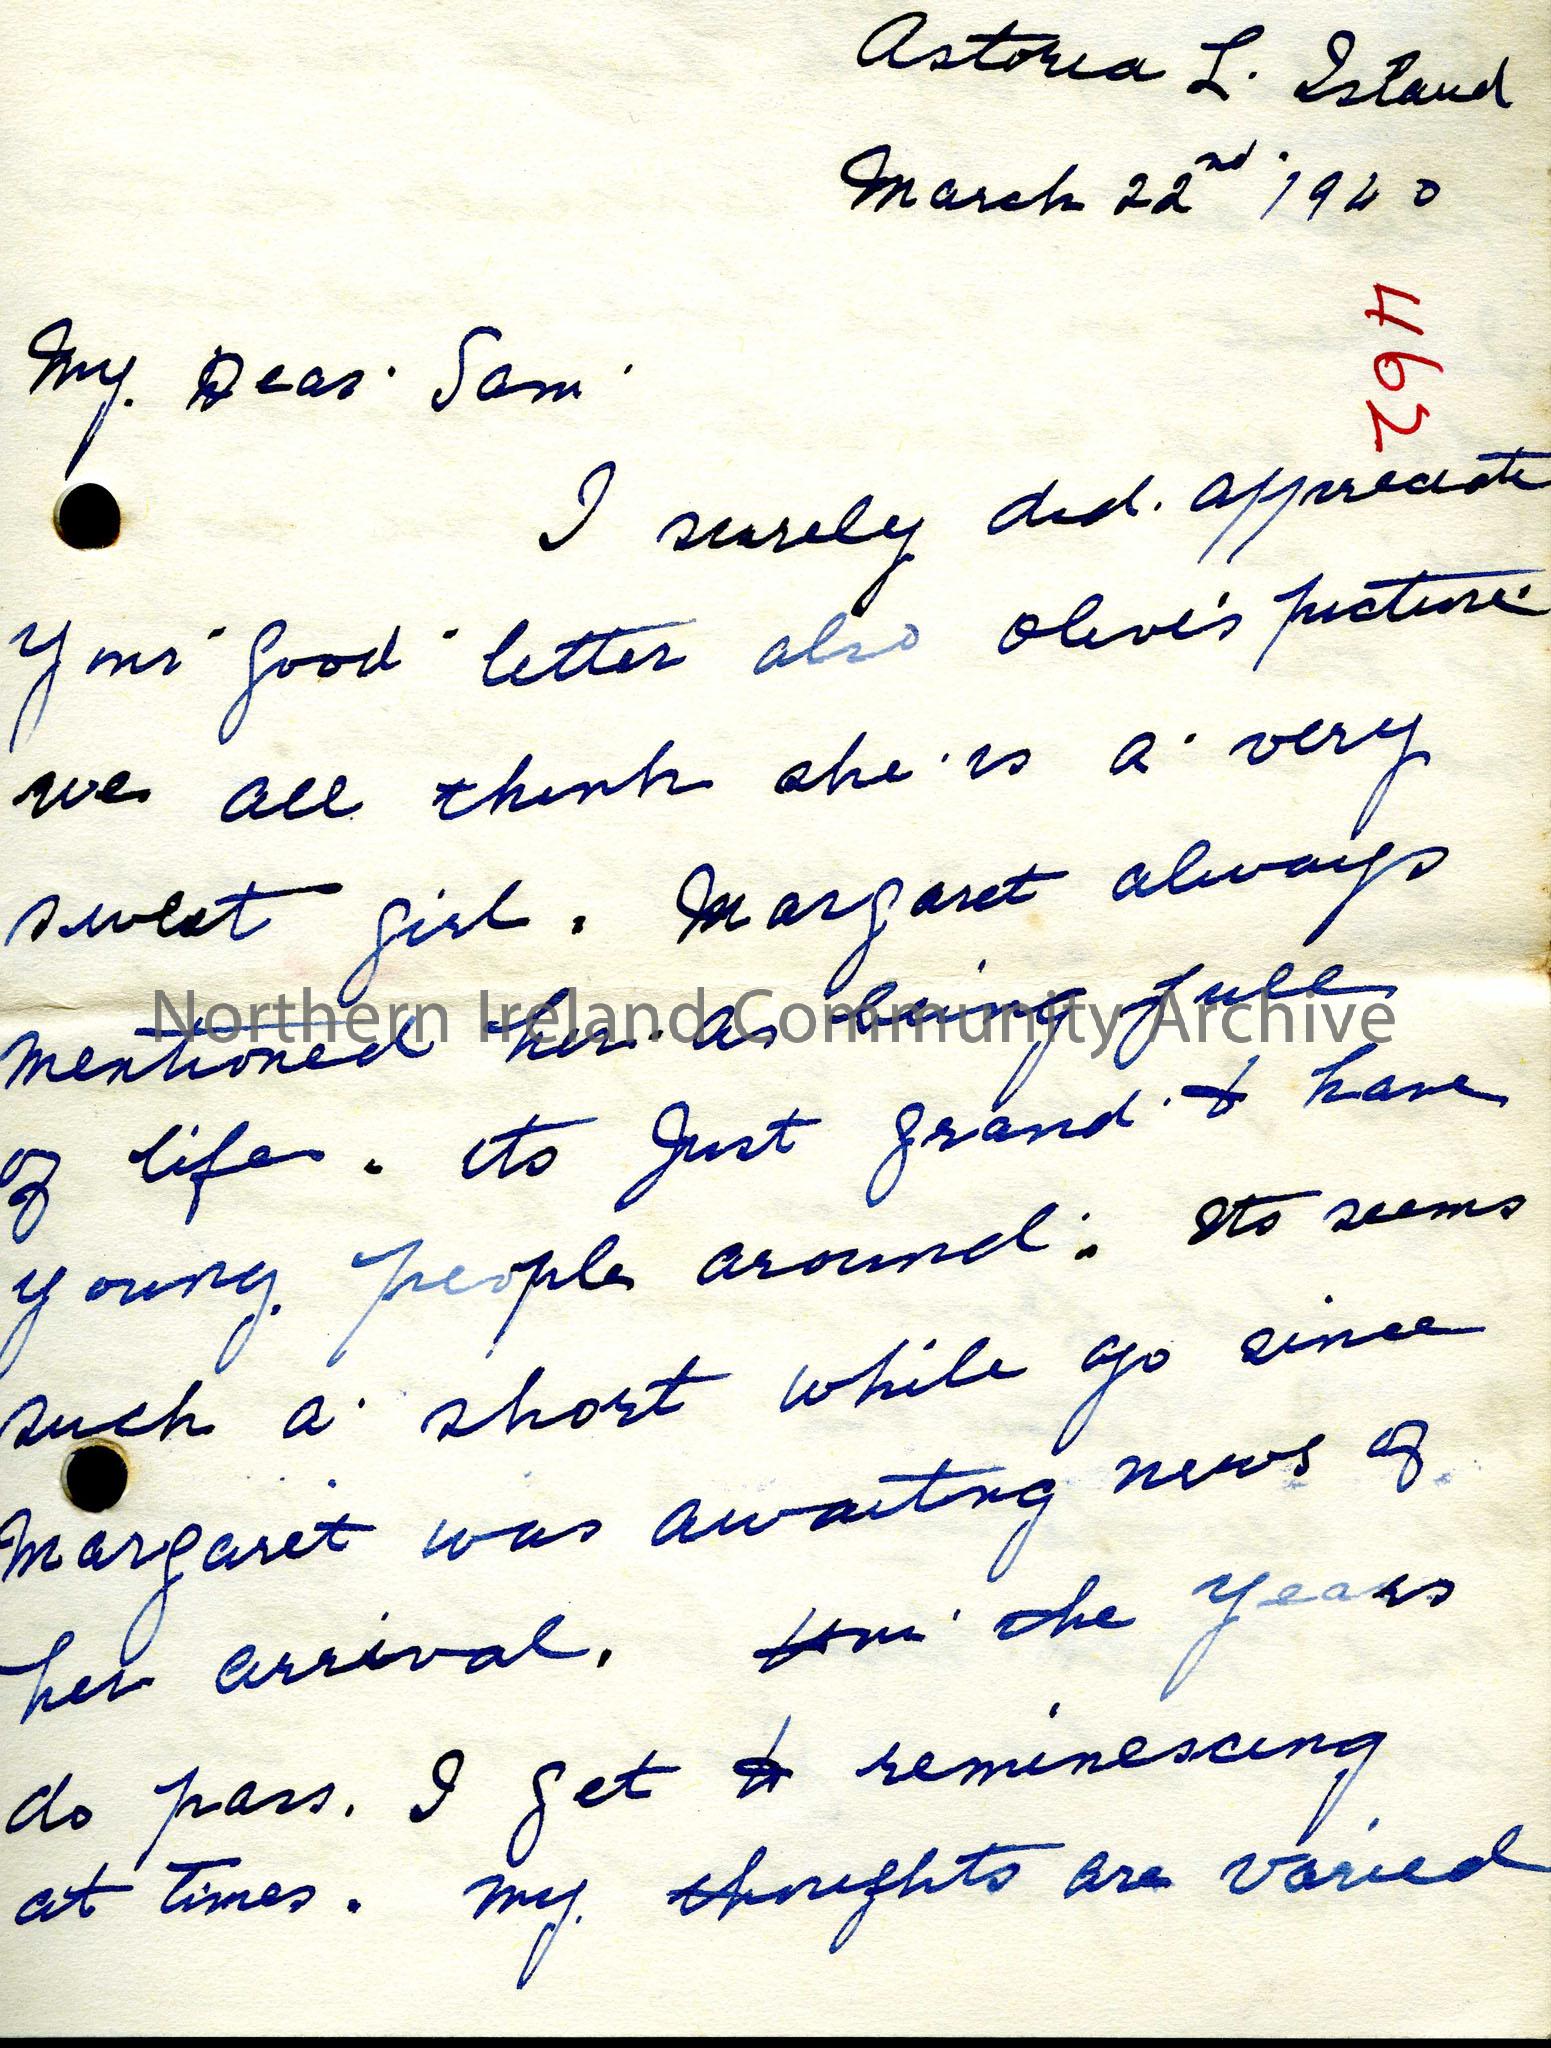 Astoria L. Island
March 22nd. 1940
462
My. Dear Sam
I surely did. appreciate
Your good letter also Olive's picture
we all think she is a very
sweet girl. Margaret always
mentioned her as being full
Northern Ireland Community Archive
of life. Its Just grand to have
young people around. Its seems
such a short while ago since
Margaret was awaiting news of
her arrival. the years
do pass. I get to reminescing
at times. My thoughts are varied